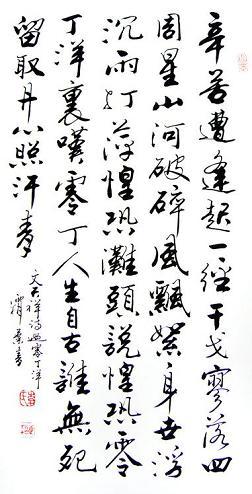 辛苦遭逢起一經干戈寥落四
周星山河破碎風飄絮身世浮
沉雨打萍惶恐灘頭說惶恐零
丁洋裏嘆零丁人生自古誰無死
留取丹心照汗青
文天祥詩過零丁洋